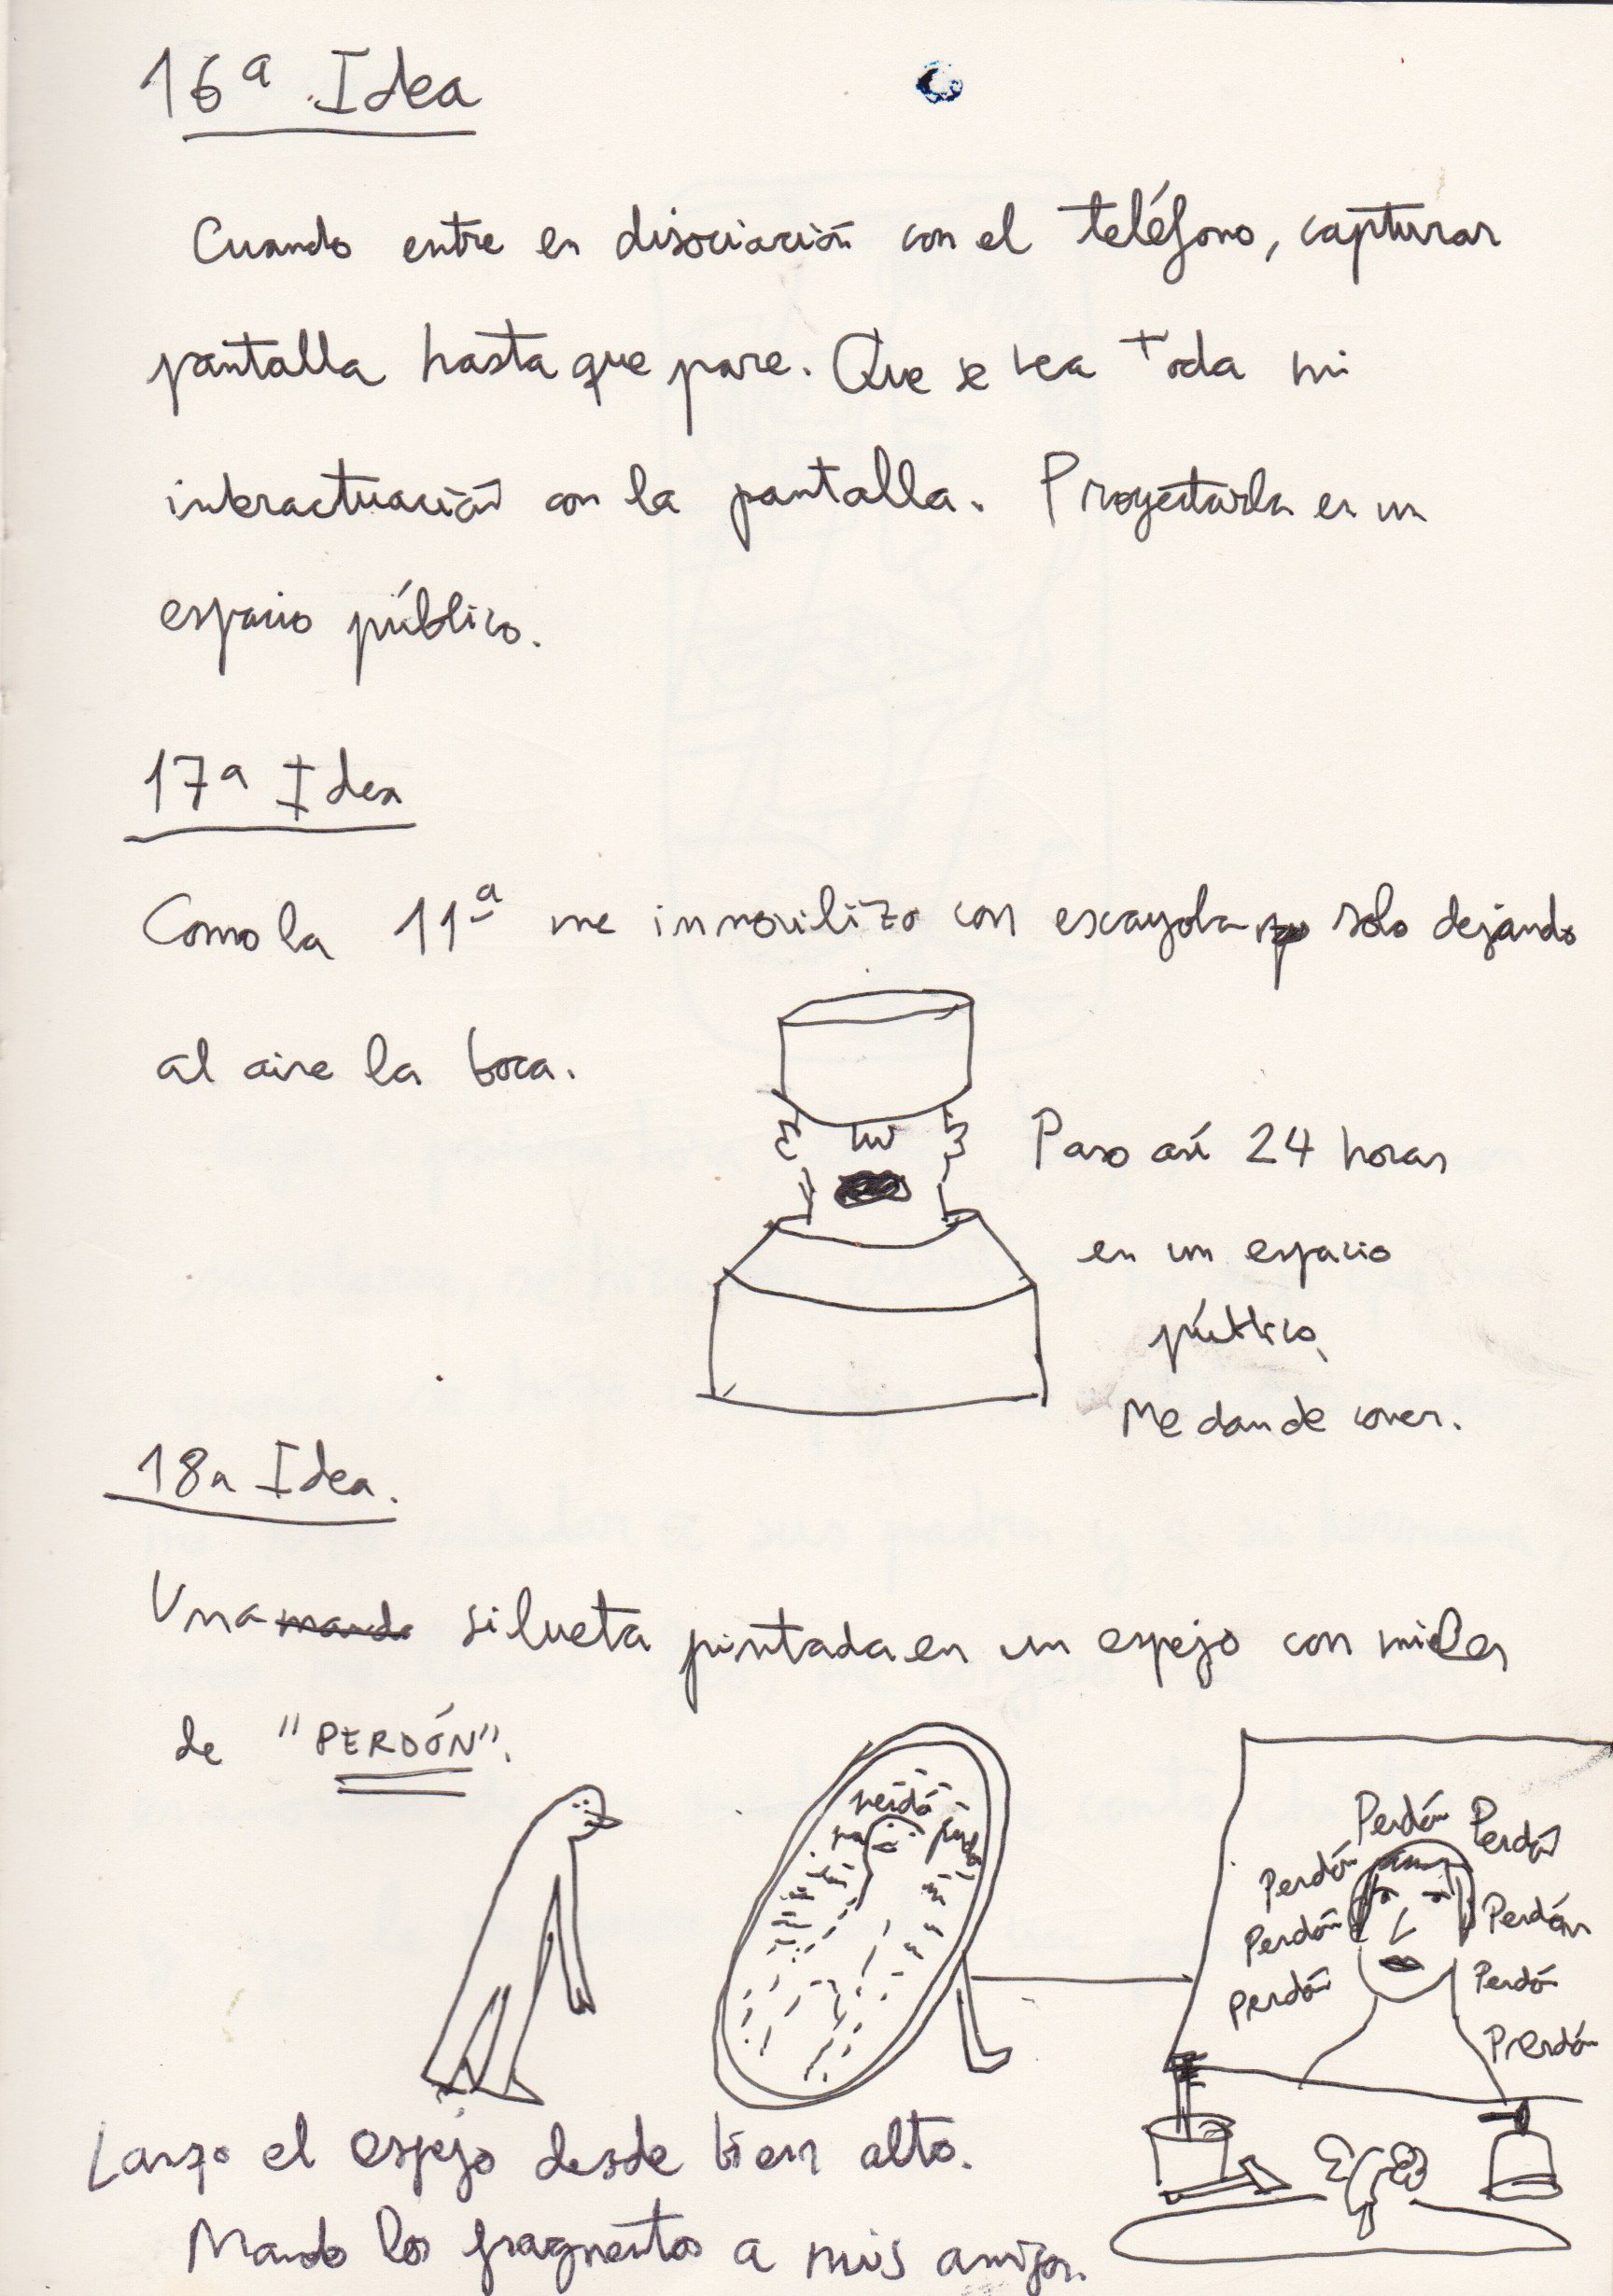 16ª Idea
Cuando entre en disociación con el teléfono, capturar
pantalla hasta que pare. Que se vea toda mi
interactuación con la pantalla. Proyectarla en un
espacio público.
17ª Idea
Como la 11ª me inmovilizo con escayola solo dejando
al aire la boca.
Paso así 24 horas
en un espacio
público,
Me dan de comer.
18a Idea.
Una silueta pintada en un espejo con miles
de "PERDÓN".
perdó
Perdón Perdón
Perdón
Perdón Perdón
Perdón Perdón
Prerdón
Lanzo el espejo desde bien alto.
Mando los fragmentos a mis amigos.